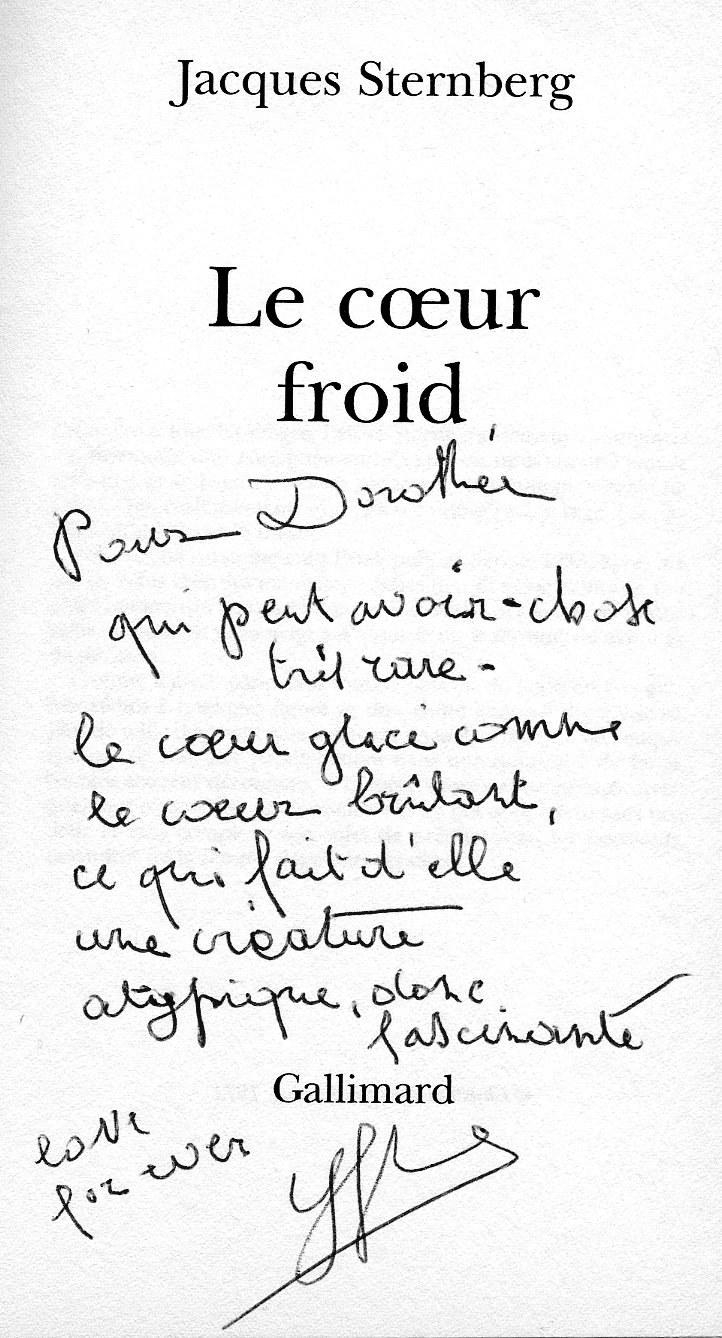 Jacques Sternberg
Le cœur
froid
Pour Dorothée
qui peut avoir - chose
très rare -
le cœur glacé comme
le cœur brûlant,
ce qui fait d'elle
une créature
atypique, donc
fascinante
Gallimard
love
for ever